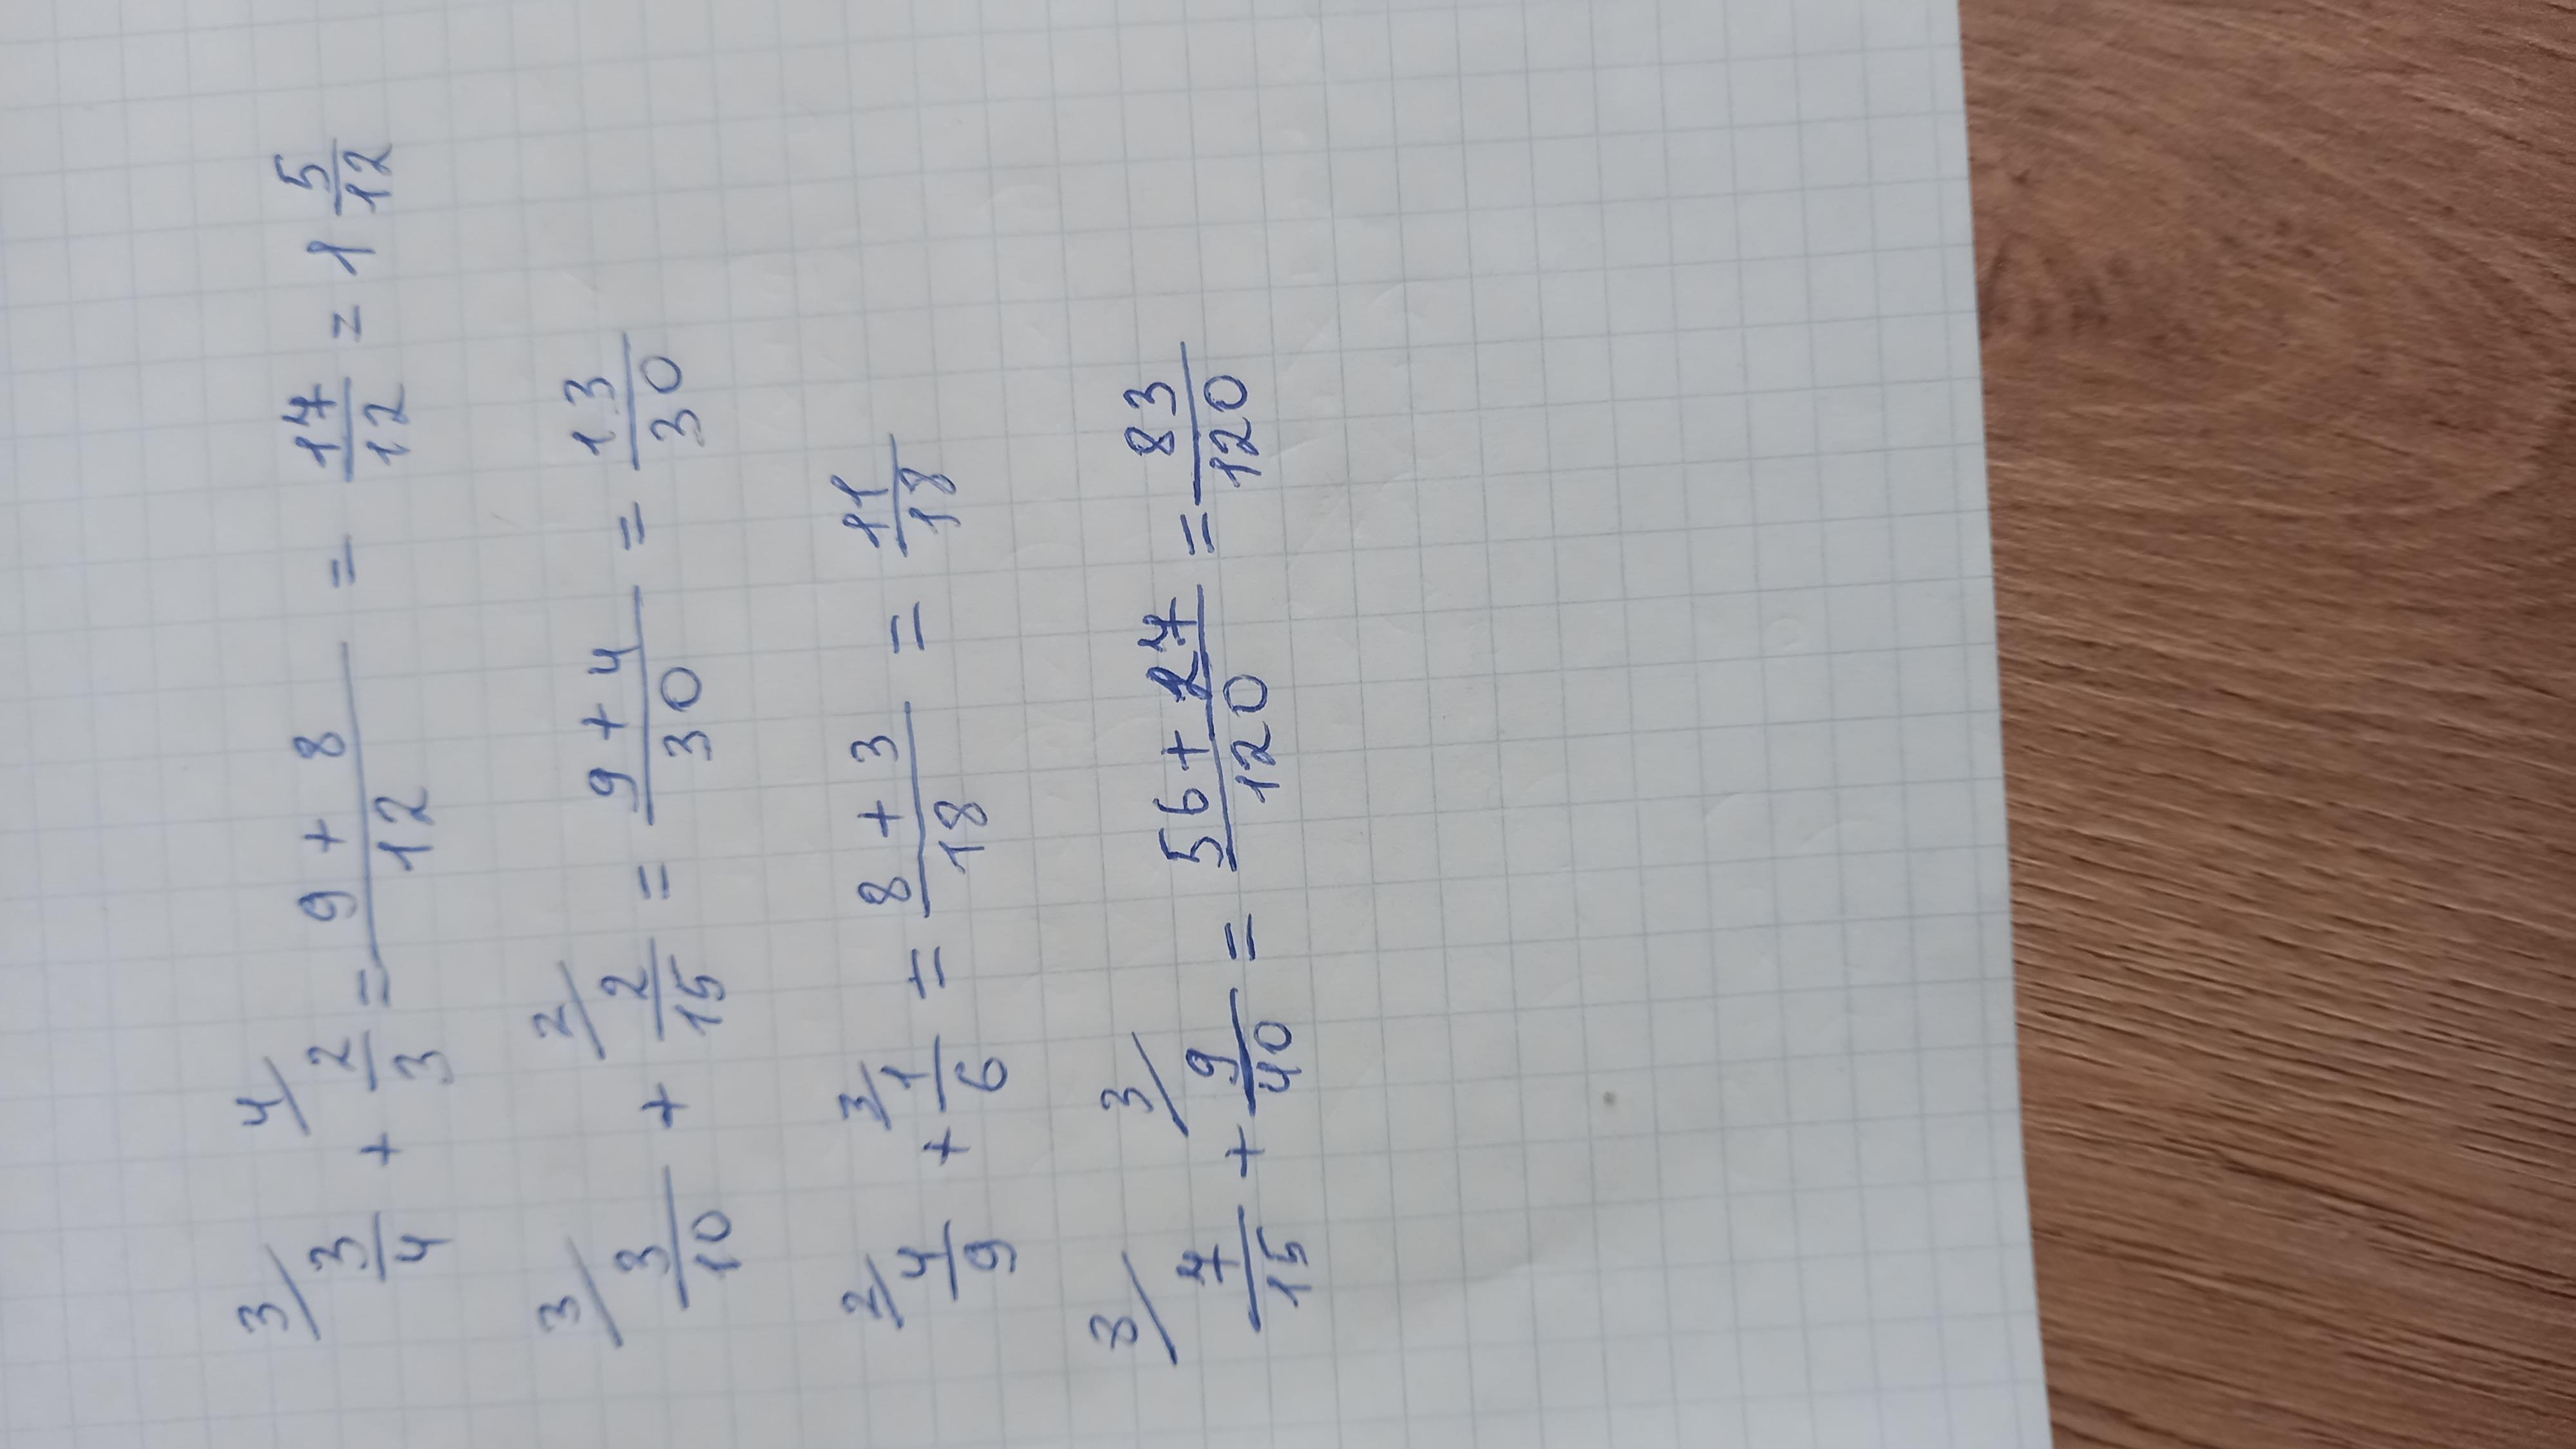 3/ 3/4 + 4/ 2/3 = (9 + 8)/12 = 17/12 = 1 5/12
3/ 3/10 + 2/ 2/15 = (9 + 4)/30 = 13/30
2/ 4/9 + 3/ 1/6 = (8 + 3)/18 = 11/18
8/ 7/15 + 3/ 9/40 = (56 + 27)/120 = 83/120